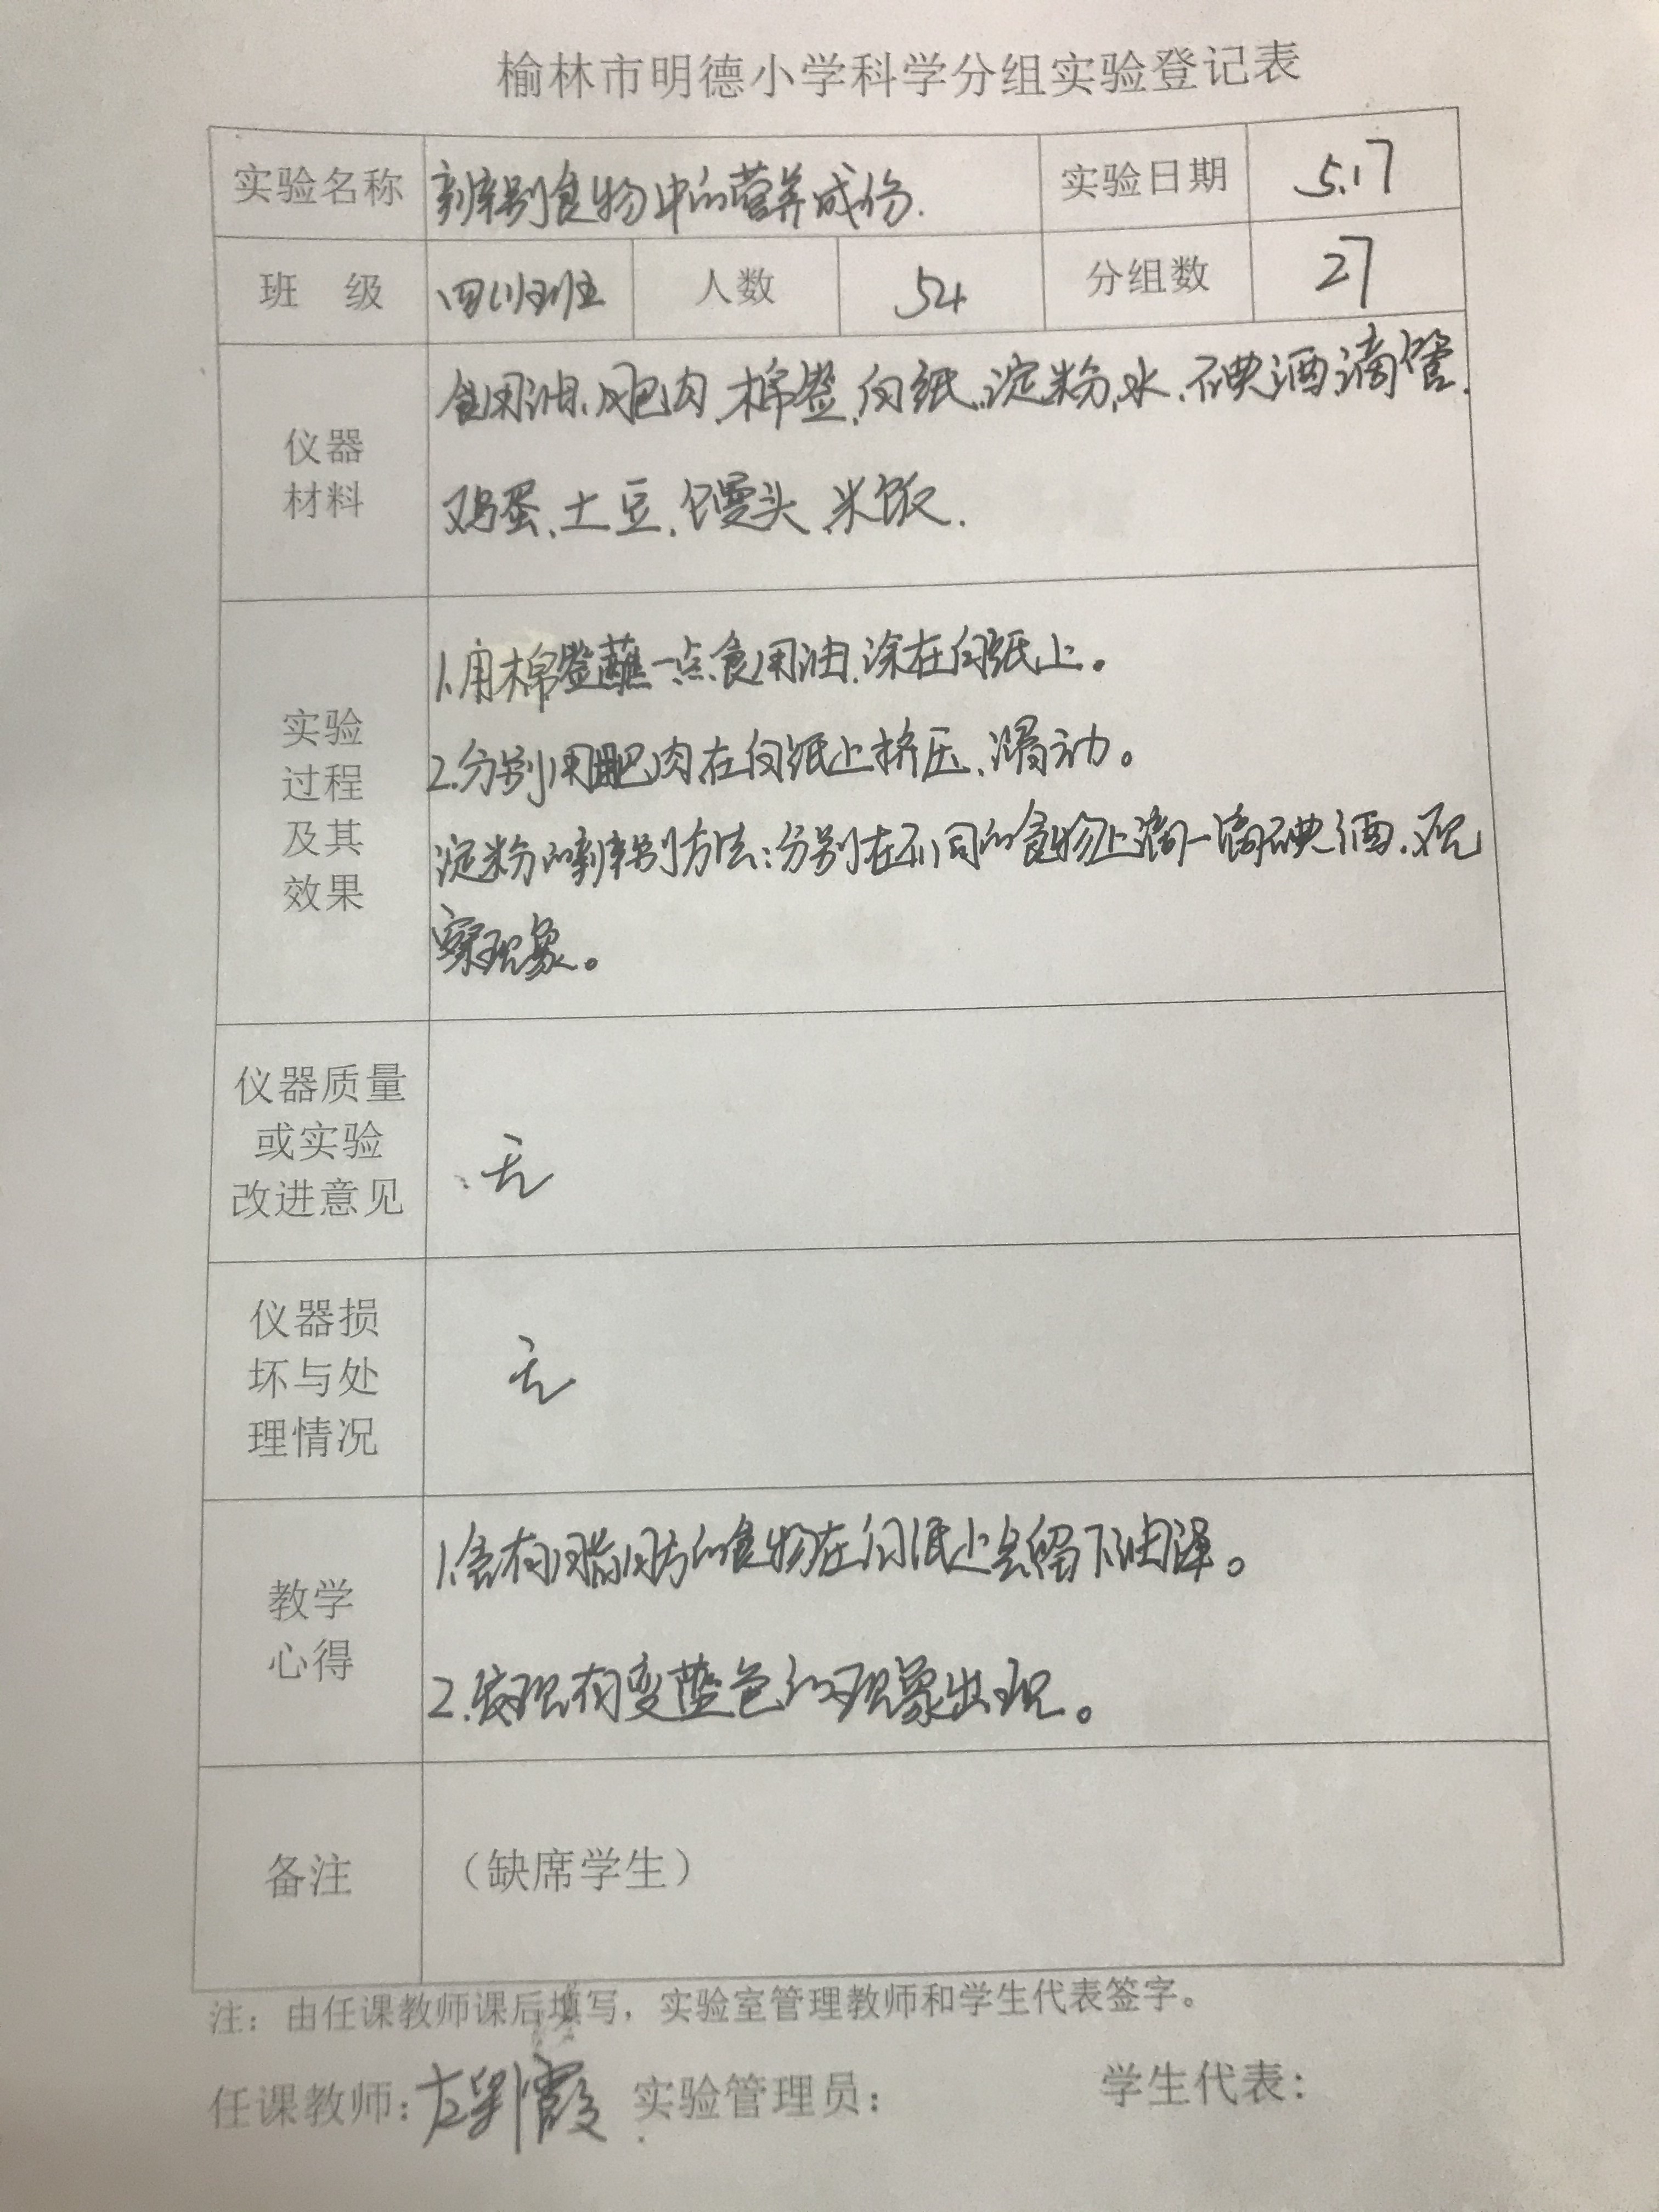 榆林市明德小学科学分组实验登记表
实验名称 辨别食物中的营养成份. 实验日期 5.17
班 级 四(1)班 人数 54 分组数 27
仪器
材料
食用油、肥肉、棉签、白纸、淀粉、水、碘酒、滴管、
鸡蛋、土豆、馒头、米饭.
实验
过程
及其
效果
1.用棉签蘸一点食用油,涂在白纸上。
2.分别用肥肉在白纸上挤压、滑动。
淀粉的辨别方法:分别在不同的食物上滴一滴碘酒,观
察现象。
仪器质量
或实验
改进意见
无
仪器损
坏与处
理情况
无
教学
心得
1.含有脂肪的食物在白纸上会留下油泽。
2.发现有变蓝色的现象出现。
备注 (缺席学生)
注:由任课教师课后填写,实验室管理教师和学生代表签字。
任课教师: 实验管理员: 学生代表: